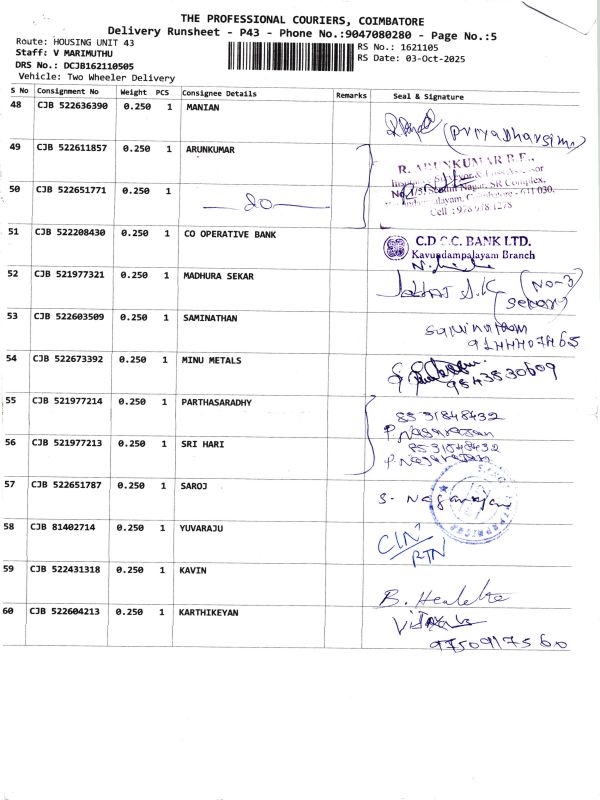 THE PROFESSIONAL COURIERS, COIMBATORE
Delivery Runsheet - P43 - Phone No.:9047080280 - Page No.:5
Route: HOUSING UNIT 43
Staff: V MARIMUTHU
DRS No.: DCJB162110505
Vehicle: Two Wheeler Delivery
RS No.: 1621105
RS Date: 03-Oct-2025
S No Consignment No Weight PCS Consignee Details Remarks Seal & Signature
48 CJB 522636390 0.250 1 MANIAN
(Priyadharsini)
49 CJB 522611857 0.250 1 ARUNKUMAR
R. ARUNKUMAR B.E.,
50 CJB 522651771 0.250 1
SR Complex,
641 030.
Cell : 978 978 1278
51 CJB 522208430 0.250 1 CO OPERATIVE BANK
C.D.C.C. BANK LTD.
Kavundampalayam Branch
52 CJB 521977321 0.250 1 MADHURA SEKAR
(NO-3
53 CJB 522603509 0.250 1 SAMINATHAN
Saminathan
54 CJB 522673392 0.250 1 MINU METALS
9843530609
55 CJB 521977214 0.250 1 PARTHASARADHY
8531848432
P. Nagarajan
56 CJB 521977213 0.250 1 SRI HARI
8531848432
P. Nagarajan
57 CJB 522651787 0.250 1 SAROJ
S. Nagarajan
58 CJB 81402714 0.250 1 YUVARAJU
59 CJB 522431318 0.250 1 KAVIN
60 CJB 522604213 0.250 1 KARTHIKEYAN
9750917560